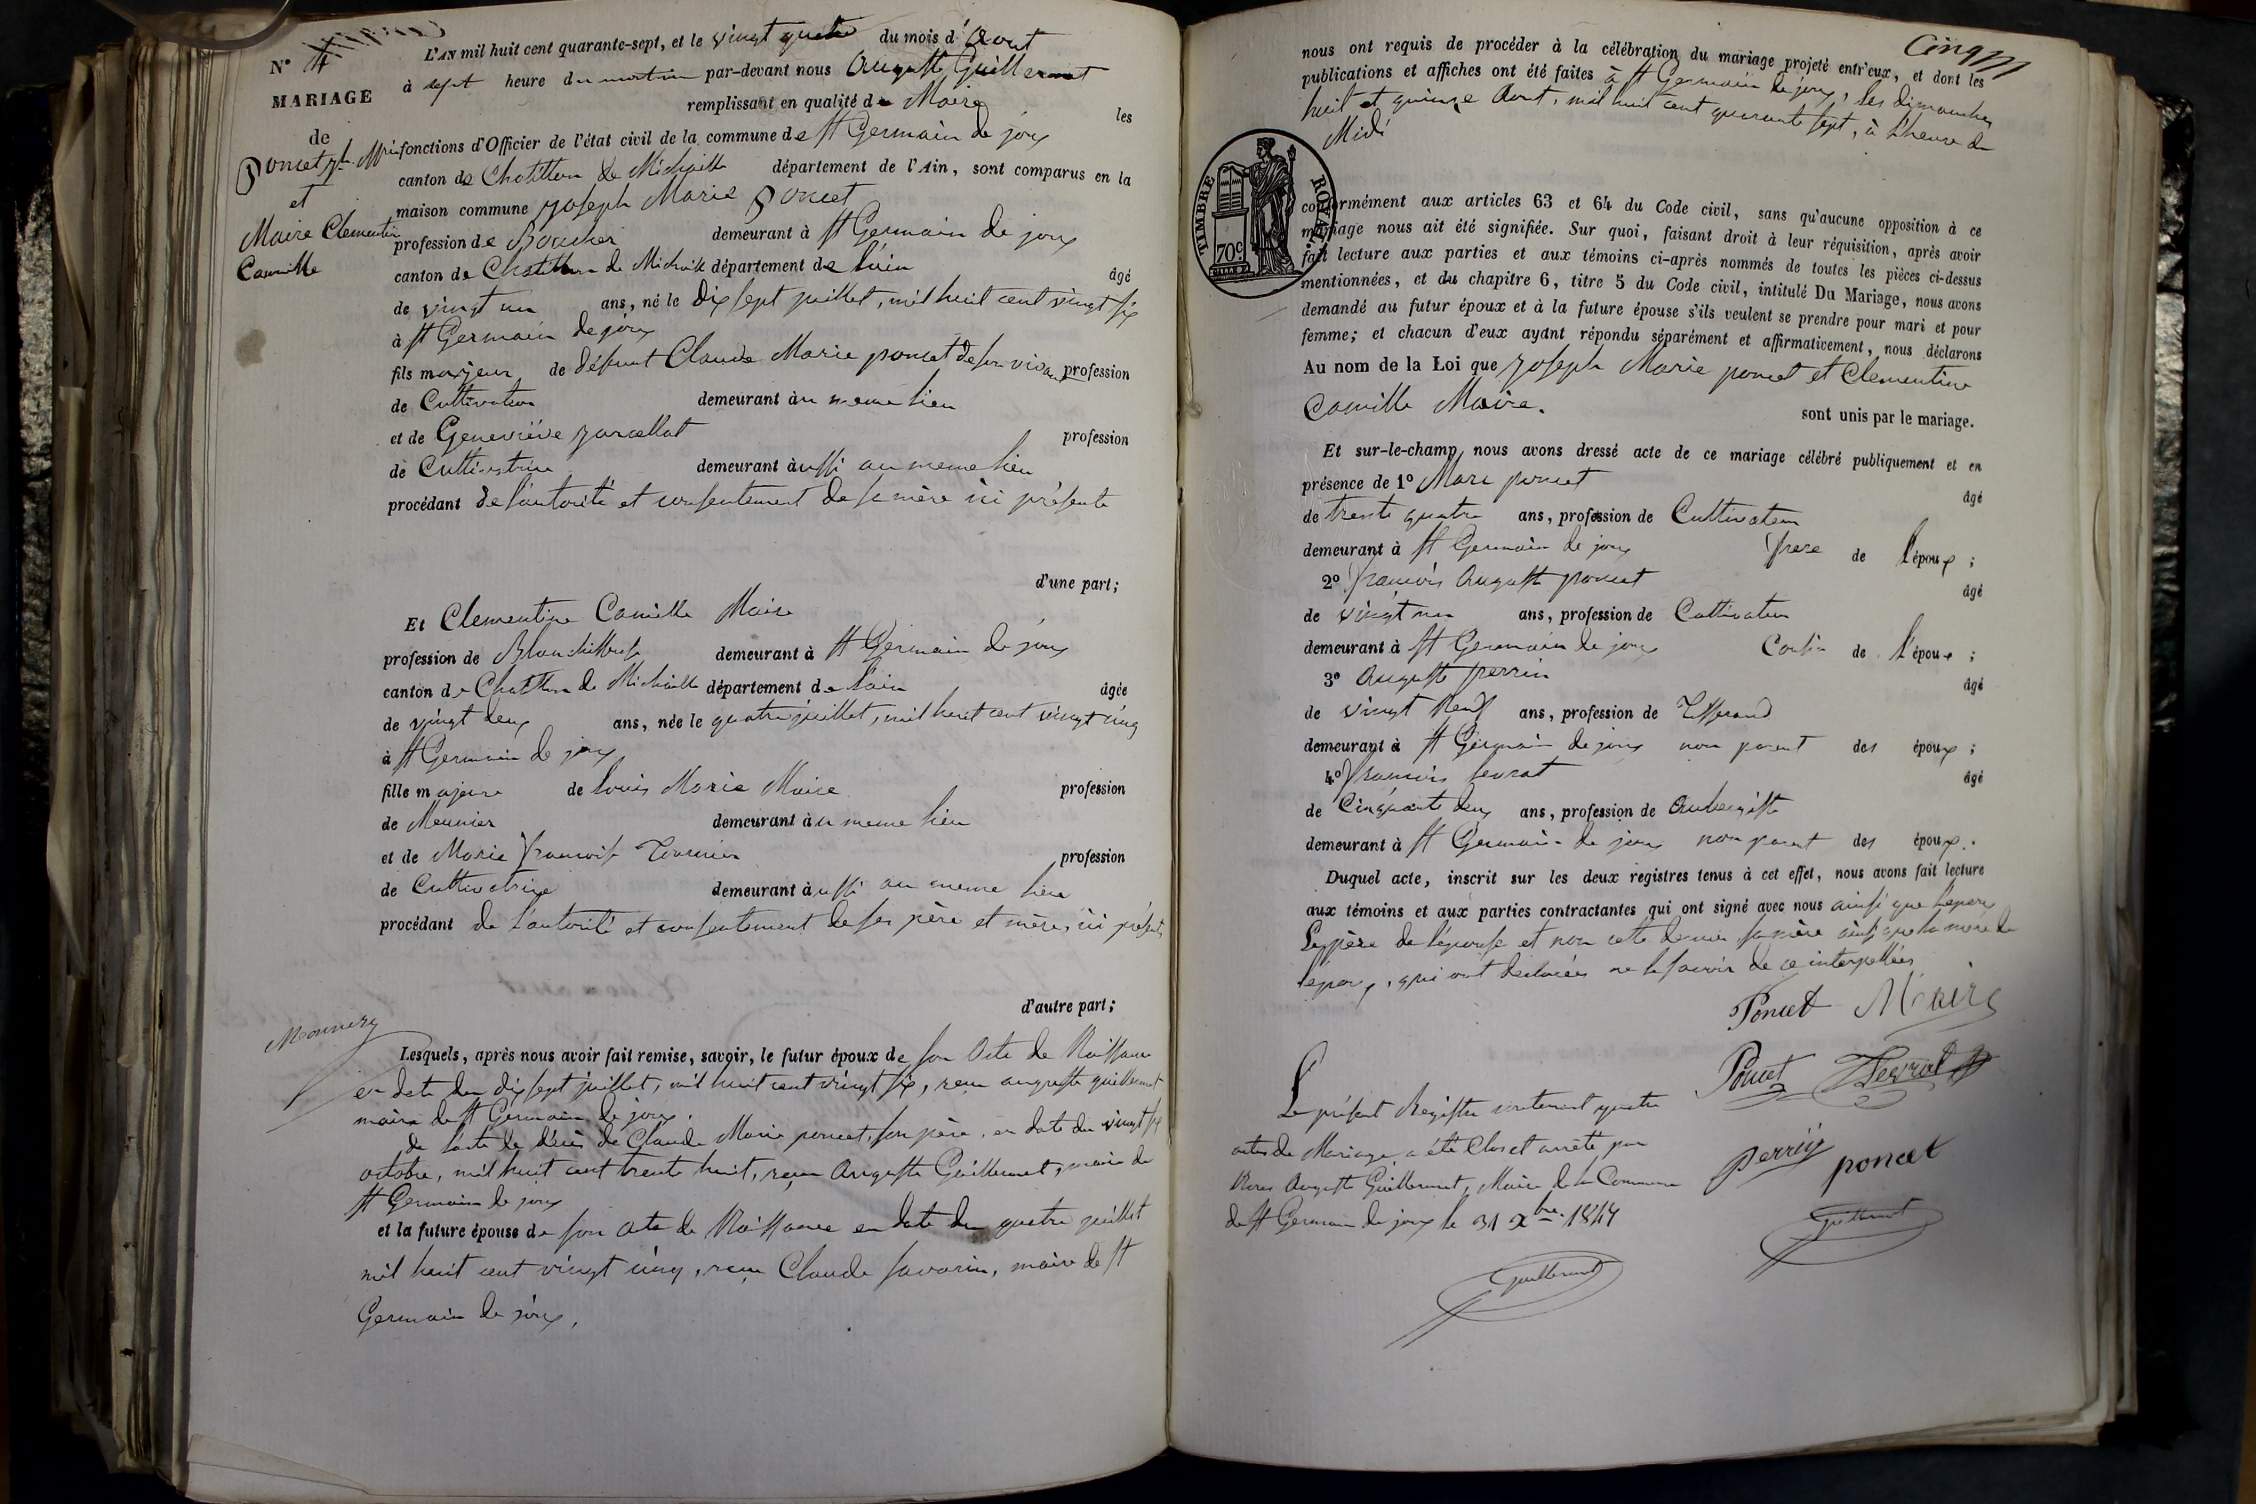 N° 4
MARIAGE
de
Poncet jph Mrie
et
Maire Clementine
Camille
L'AN mil huit cent quarante-sept, et le vingt quatre du mois d'Aout
à sept heure du matin par-devant nous Auguste Guillermet
remplissant en qualité de Maire les
fonctions d'Officier de l'état civil de la commune de St Germain de joux
canton de Chatillon de Michaille département de l'Ain, sont comparus en la
maison commune Joseph Marie Poncet
profession de Boucher demeurant à St Germain de joux
canton de Chatillon de Michaille département de l'ain âgé
de vingt un ans, né le dix sept juillet, mil huit cent vingt six
à St Germain de joux
fils majeur de défunt Claude Marie poncet de son vivant profession
de Cultivateur demeurant au meme lieu
et de Geneviève Jarcellat profession
de Cultivatrice demeurant aussi au meme lieu
procédant de l'autorité et consentement de sa mère ici présente
d'une part;
Et Clementine Camille Maire
profession de Blanchisseuse demeurant à St Germain de joux
canton de Chatillon de Michaille département de l'ain âgée
de vingt deux ans, née le quatre juillet, mil huit cent vingt cinq
à St Germain de joux
fille majeure de Louis Marie Maire profession
de Meunier demeurant au meme lieu
et de Marie françoise Tournier profession
de Cultivatrice demeurant aussi au meme lieu
procédant de l'autorité et consentement de ses père et mère, ici présents
d'autre part;
Lesquels, après nous avoir fait remise, savoir, le futur époux de son Acte de Naissance
en date du dix sept juillet, mil huit cent vingt six, reçu auguste guillermet
maire de St Germain de joux.
de l'acte de décès de Claude Marie poncet, son père, en date du vingt six
octobre, mil huit cent trente huit, reçu Auguste Guillermet, maire de
St Germain de joux
et la future épouse de son acte de Naissance en date du quatre juillet
mil huit cent vingt cinq, reçu Claude Savarin, maire de St
Germain de joux,
Cinq
nous ont requis de procéder à la célébration du mariage projeté entr'eux, et dont les
publications et affiches ont été faites à St Germain de joux, les dimanches
huit et quinze Aout, mil huit cent quarante sept, à l'heure de
Midi
TIMBRE ROYAL
70c
conformément aux articles 63 et 64 du Code civil, sans qu'aucune opposition à ce
mariage nous ait été signifiée. Sur quoi, faisant droit à leur réquisition, après avoir
fait lecture aux parties et aux témoins ci-après nommés de toutes les pièces ci-dessus
mentionnées, et du chapitre 6, titre 5 du Code civil, intitulé Du Mariage, nous avons
demandé au futur époux et à la future épouse s'ils veulent se prendre pour mari et pour
femme; et chacun d'eux ayant répondu séparément et affirmativement, nous déclarons
Au nom de la Loi que Joseph Marie poncet et Clementine
Camille Maire.
sont unis par le mariage.
Et sur-le-champ, nous avons dressé acte de ce mariage célébré publiquement et en
présence de 1° Marc poncet âgé
de trente quatre ans, profession de Cultivateur
demeurant à St Germain de joux frere de l'époux;
2° françois Auguste poncet âgé
de vingt un ans, profession de Cultivateur
demeurant à St Germain de joux Cousin de l'époux;
3° Auguste perrin âgé
de vingt Neuf ans, profession de Tisserand
demeurant à St Germain de joux non parent des époux;
4° françois Levrat âgé
de Cinquante deux ans, profession de Aubergiste
demeurant à St Germain de joux non parent des époux.
Duquel acte, inscrit sur les deux registres tenus à cet effet, nous avons fait lecture
aux témoins et aux parties contractantes qui ont signé avec nous ainsi que l'époux
Le père de l'épouse et non cette derniere sa mère ainsi que la mere de
l'époux, qui ont declarées ne le savoir de ce interpellées
Poncet Maire
Poncet Levrat
perrin poncet
Guillermet
Le présent Registre contenant quatre
actes de Mariage a été Clos et arrêté par
Nous Auguste Guillermet, Maire de la Commune
de St Germain de joux le 31 Xbre 1847
Guillermet